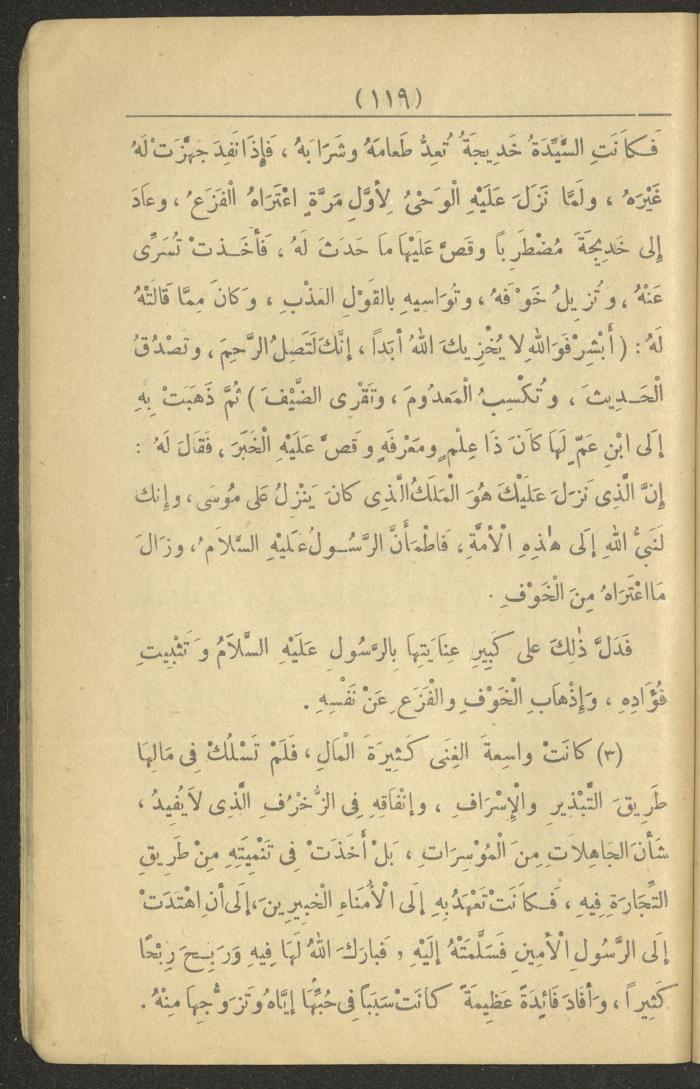 (١١٩)
فَكانَتِ السَّيِّدَةُ خَدِيجَةُ تُعِدُّ طَعامَهُ وشَرَابَهُ ، فَإِذَا نَفِدَ جَهَّزَتْ لَهُ
غَيْرَهُ ، ولَمَّا نَزَلَ عَلَيْهِ الْوَحْىُ لِأَوَّلِ مَرَّةٍ اعْتَرَاهُ الْفَزَعُ ، وعادَ
إِلى خَدِيجَةَ مُضْطَرِباً وقَصَّ عَلَيْهَا ما حَدَثَ لَهُ ، فَأَخَذَتْ تُسَرِّى
عَنْهُ ، وتُزِيلُ خَوْفَهُ ، وتُوَاسِيهِ بالقَوْلِ العَذْبِ ، وَكانَ مِمَّا قالَتْهُ
لَهُ : ( أَبْشِرْ فَوَاللهِ لا يُخْزِيكَ اللهُ أَبَداً ، إِنَّكَ لَتَصِلُ الرَّحِمَ ، وتَصْدُقُ
الْحَدِيثَ ، وتُكْسِبُ الْمَعدُومَ ، وتَقْرِى الضَّيْفَ ) ثُمَّ ذَهَبَتْ بِهِ
إِلَى ابْنِ عَمٍّ لَهَا كانَ ذَا عِلْمٍ ومَعْرِفَةٍ وقَصَّ عَلَيْهِ الْخَبَرَ ، فَقالَ لَهُ :
إِنَّ الَّذِى نَزَلَ عَلَيْكَ هُوَ الْمَلَكُ الَّذِى كانَ يَنْزِلُ عَلى مُوسَى ، وإِنك
لَنَبِىُّ اللهِ إِلَى هٰذِهِ الْأُمَّةِ ، فَاطْمَأَنَّ الرَّسُولُ عَلَيْهِ السَّلَامُ ، وزَالَ
مَا اعْتَرَاهُ مِنَ الْخَوْفِ .
فَدَلَّ ذٰلِكَ على كَبِيرِ عِنايَتِهَا بِالرَّسُولِ عَلَيْهِ السَّلَامُ وَتَثْبِيتِ
فُؤَادِهِ ، وَإِذْهَابِ الْخَوْفِ والْفَزَعِ عَنْ نَفْسِهِ .
(٣) كانَتْ واسِعةَ الغِنَى كَثِيرَةَ الْمَالِ ، فَلَمْ تَسْلُكْ فى مَالِهَا
طَرِيقَ التَّبْذِيرِ والْإِسْرَافِ ، وإنْفَاقِهِ فِى الزُّخْرُفِ الَّذِى لاَ يُفِيدُ ،
شَأنَ الجَاهِلاَتِ مِنَ الْمُوْسِرَاتِ ، بَلْ أَخَذَتْ فى تَنْمِيَتِهِ مِنْ طَرِيقِ
التِّجَارَةِ فِيهِ ، فَكانَتْ تَعْهَدُ بِهِ إِلَى الْأُمَنَاءِ الْخَبِيرِينَ ، إِلَى أنِ اهْتَدَتْ
إِلَى الرَّسُولِ الْأَمِينِ فَسَلَّمَتْهُ إِلَيْهِ ، فَبارَكَ اللهُ لَهَا فِيهِ وَرَبِحَ رِبْحًا
كَثِيراً ، وَأَفَادَ فَائِدَةً عَظِيمَةً كانَتْ سَبَبَاً فِى حُبِّهَا إِيَّاهُ وَتَزَوُّجِهَا مِنْهُ .